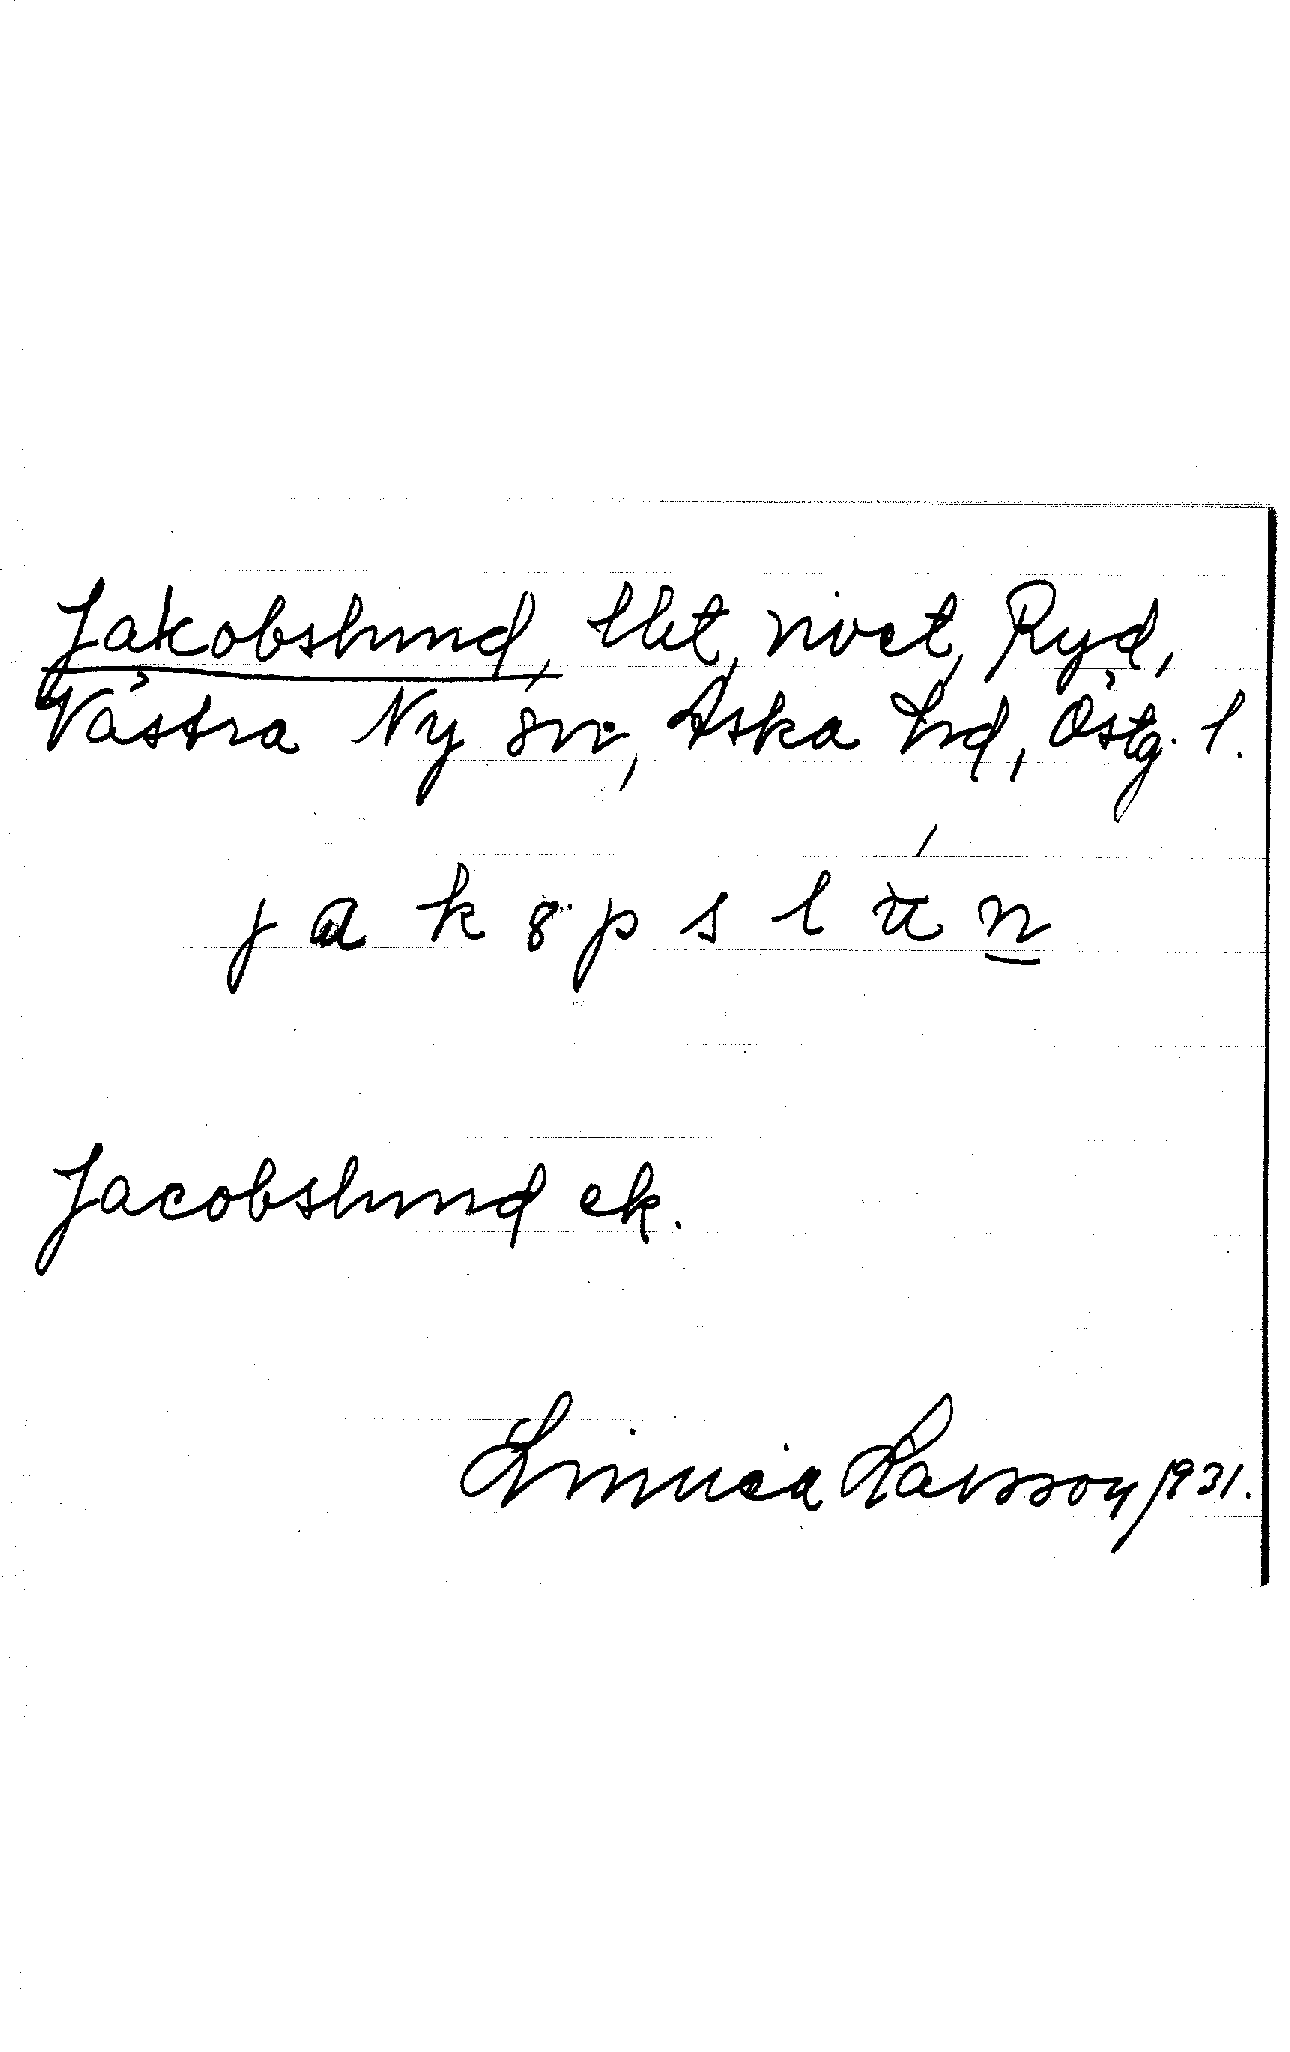 Jakobslund, lht, nvet, Ryd,
Västra Ny sn, Aska hd, Östg. l.
jakopslun
Jacobslund ek.
Linnea Larsson 1931.